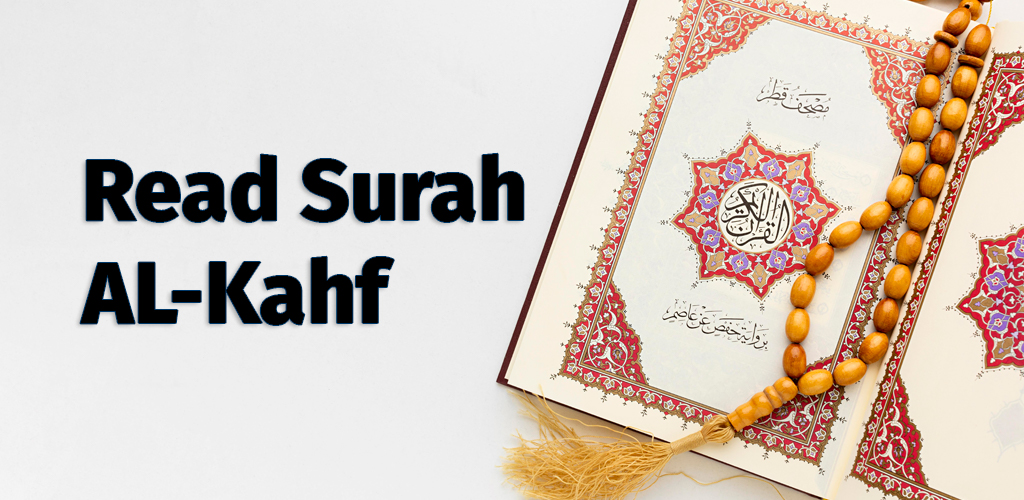 Read Surah
AL-Kahf
مصحف قطر
القرآن الكريم
برواية حفص عن عاصم